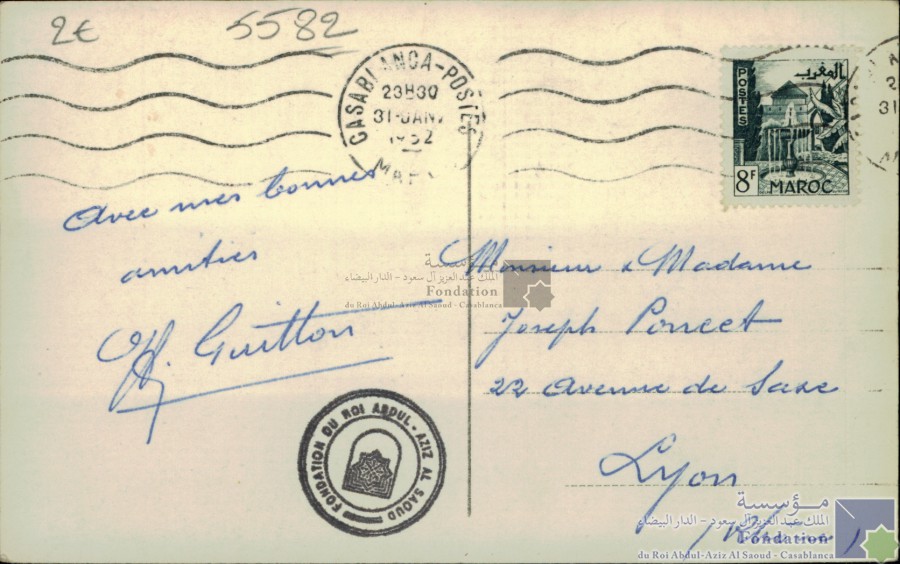 2€ 5582
CASABLANCA-POSTES
23H30
31-JANV
1952
POSTES
المغرب
8F MAROC
Avec mes bonnes
amitiés
H. Guitton
Monsieur & Madame
Joseph Poncet
22 Avenue de Saxe
Lyon
(Rhône)
مؤسسة
الملك عبد العزيز آل سعود - الدار البيضاء
Fondation
du Roi Abdul-Aziz Al Saoud - Casablanca
FONDATION DU ROI ABDUL-AZIZ AL SAOUD
مؤسسة
الملك عبد العزيز آل سعود - الدار البيضاء
Fondation
du Roi Abdul-Aziz Al Saoud - Casablanca